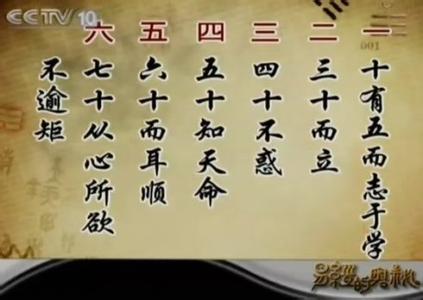 CCTV 10
一 二 三 四 五 六
001
十有五而志于学
三十而立
四十不惑
五十知天命
六十而耳顺
七十从心所欲
不逾矩
易经的奥秘